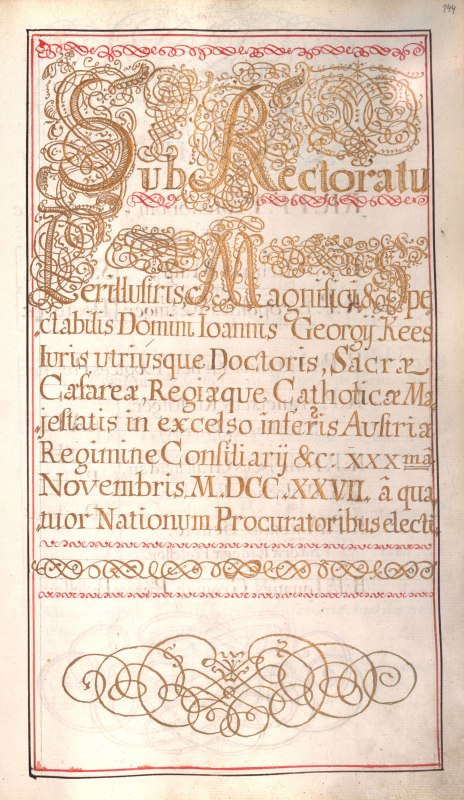 144
Sub Rectoratu
Perillustris, Magnifici, & Spe„
„ctabilis Domini Ioannis Georgij Kees
Iuris utriusque Doctoris, Sacræ
Cæsareæ, Regiæque Catholicæ Ma„
„jestatis in excelso inferis Austriæ
Regimine Consiliarij &c. XXXmâ
Novembris M.DCC.XXVII. â qua„
„tuor Nationum Procuratoribus electi.